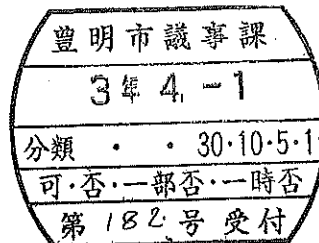 豊明市議事課
3年4.-1
分類 ・ ・ 30・10・5・1
可・否・一部否・一時否
第182号受付